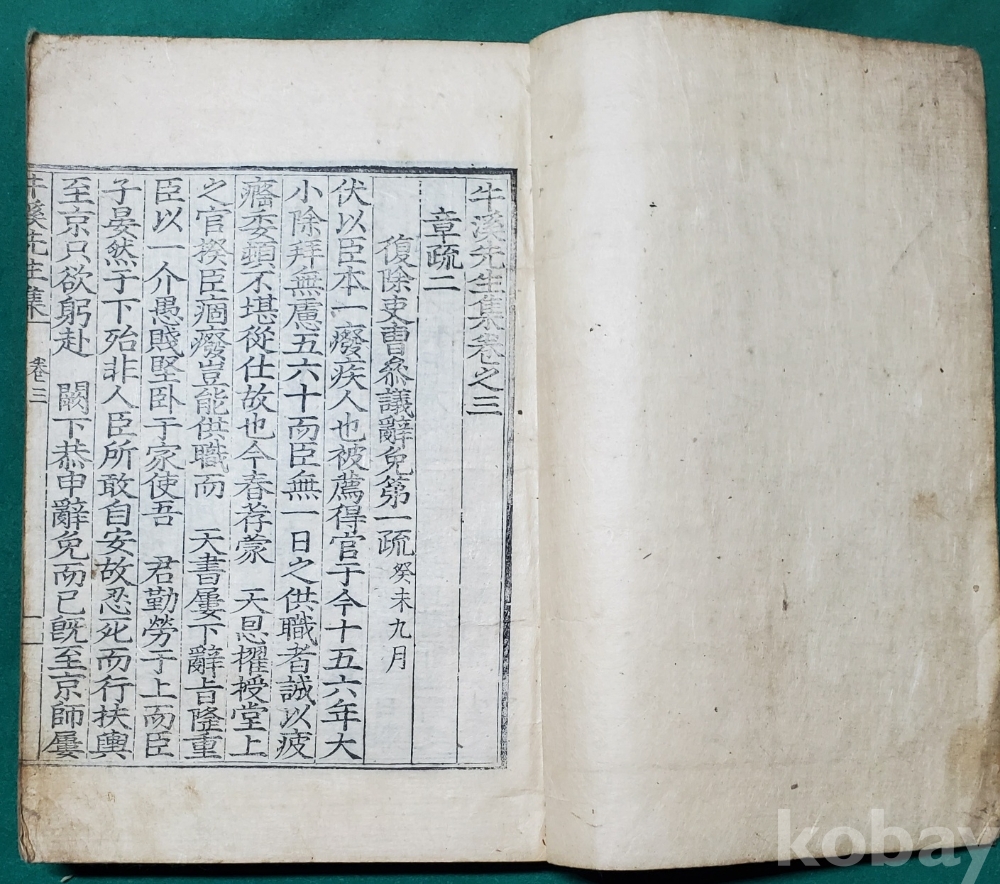 牛溪先生集卷之三
章疏二
復除吏曹叅議辭免第一疏 癸未九月
伏以臣本一癈疾人也被薦得官于今十五六年大
小除拜無慮五六十而臣無一日之供職者誠以疲
癃委頓不堪從仕故也今春荐蒙 天恩擢授堂上
之官揆臣痼癈豈能供職而 天書屢下辭旨隆重
臣以一介愚賤堅卧于家使吾 君勤勞于上而臣
子晏然于下殆非人臣所敢自安故忍死而行扶輿
至京只欲躬赴 闕下恭申辭免而已旣至京師屢
牛溪先生集 卷三 一
kobay